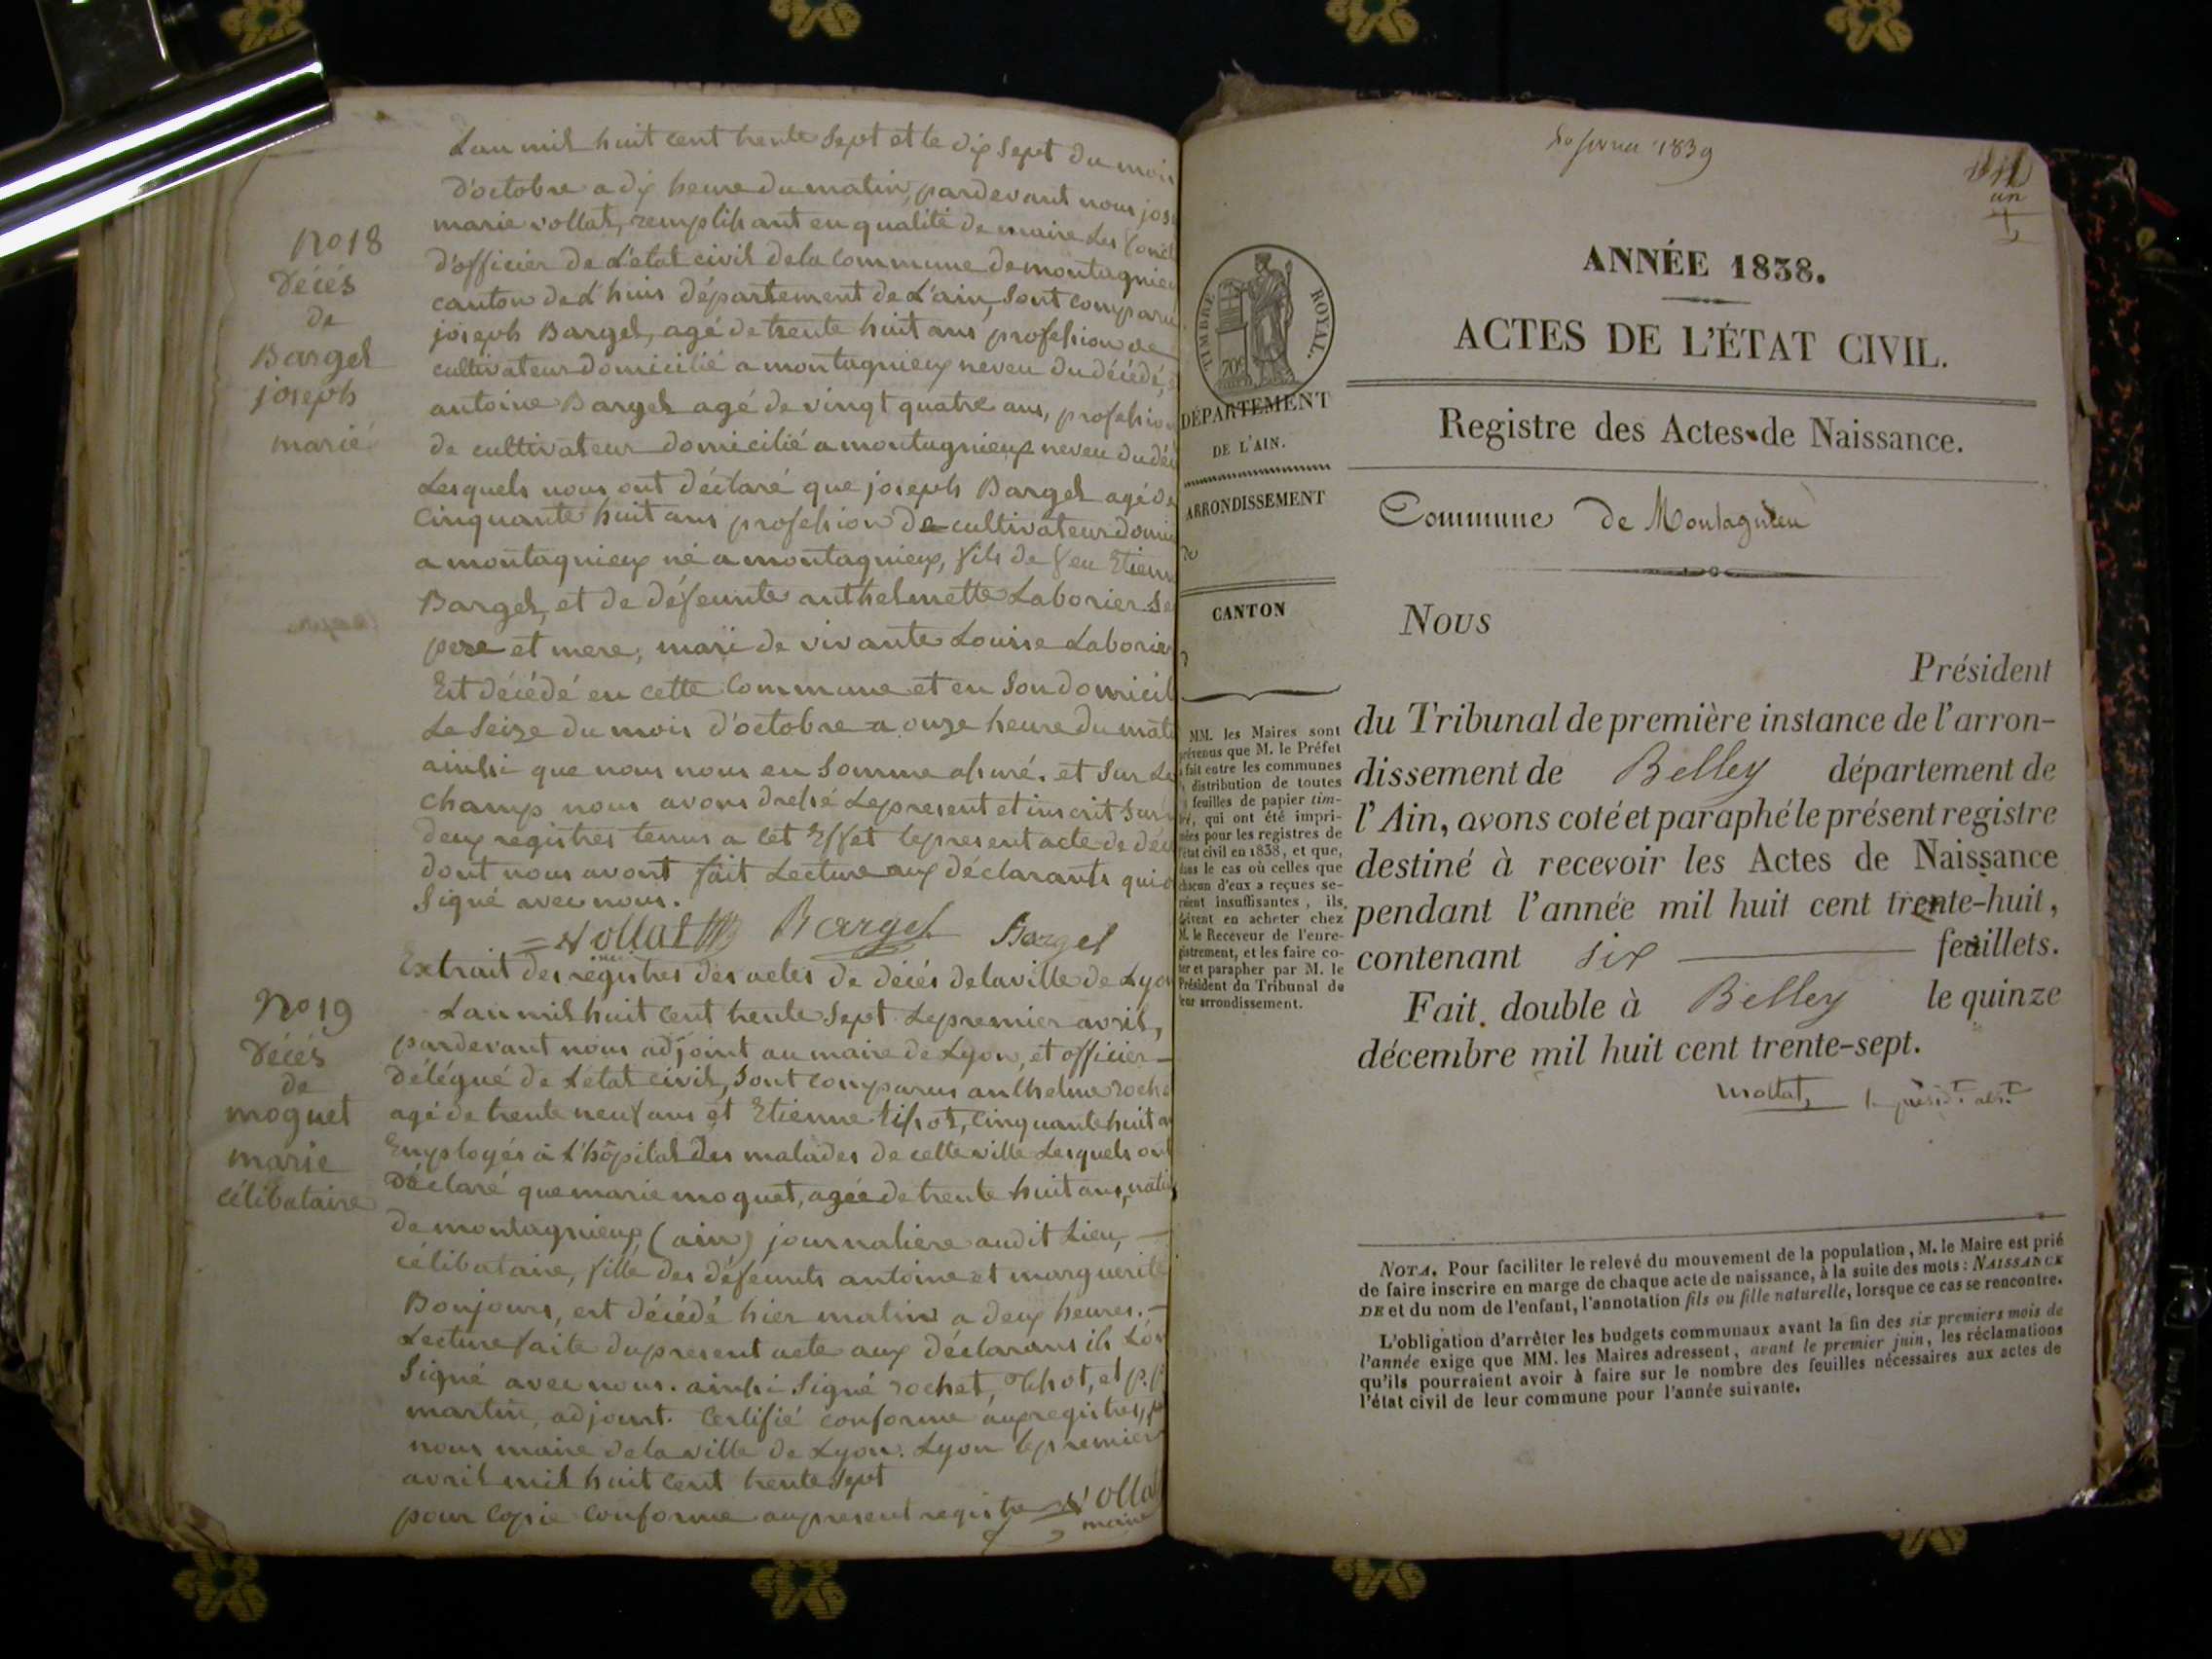 L'an mil huit cent trente sept et le dix sept du mois
d'octobre a dix heure du matin, pardevant nous jos
marie vollat, remplissant en qualité de maire les fonct
d'officier de l'état civil de la commune de montagnieu
canton de L'huis département de L'ain, sont comparu
joseph Bargel, agé de trente huit ans profession de
cultivateur domicilié a montagnieux neveu du décédé,
antoine Bargel agé de vingt quatre ans, profession
de cultivateur domicilié a montagnieux neveu du déc
Lesquels nous ont déclaré que joseph Bargel agé de
Cinquante huit ans profession de cultivateur domic
a montagnieux né a montagnieux, fils de feu Etienn
Bargel, et de défeunte anthelmette Laborier se
pere et mere, mari de vivante Louise Laborier
Est décédé en cette Commune et en son domicil
Le seize du mois d'octobre a onze heure du mat
ainssi que nous nous en somme assuré. et sur Le
champ nous avons dressé Le present et inscrit sur
deux registres tenus a cet Effet le present acte de déc
dont nous avont fait Lecture aux déclarants qui o
Signé avec nous.
No 18
Décés
de
Bargel
joseph
marié
Vollat Bargel Bargel
Extrait des régistres des actes de décés de la ville de Lyon
L'an mil huit cent trente sept Le premier avril,
pardevant nous adjoint au maire de Lyon, et officier
délégué de L'état civil, sont comparus anthelme roche
agé de trente neuf ans et Etienne tissot, cinquante huit a
Employés à l'hôpital des malades de cette ville Lesquels ont
Déclaré que marie moguet, agée de trente huit ans, nativ
de montagnieux (ain) journaliere audit Lieu,
célibataire, fille des défeunts antoine et marguerite
Bonjours, est décédé hier matin a deux heures.
Lecture faite du present acte aux déclarans ils L'on
Signé avec nous. ainssi signé rochet, Tissot, et p. p
martin, adjoint. Certifié conforme aux registres, p
nous maire de la ville de Lyon. Lyon le premier
avril mil huit cent trente sept
pour Copie Conforme au present registre Vollat
maire
No 19
Décés
de
moguet
marie
célibataire
1839
un
ANNÉE 1838.
ACTES DE L'ÉTAT CIVIL.
Registre des Actes de Naissance.
Commune de Montagnieu
TIMBRE ROYAL.
70c
DÉPARTEMENT
DE L'AIN.
ARRONDISSEMENT
de
CANTON
d
MM. les Maires sont
prévenus que M. le Préfet
a fait entre les communes
la distribution de toutes
les feuilles de papier tim-
bré, qui ont été impri-
mées pour les registres de
l'état civil en 1838, et que,
dans le cas où celles que
chacun d'eux a reçues se-
raient insuffisantes, ils
doivent en acheter chez
M. le Receveur de l'enre-
gistrement, et les faire co-
ter et parapher par M. le
Président du Tribunal de
leur arrondissement.
Nous
Président
du Tribunal de première instance de l'arron-
dissement de Belley département de
l'Ain, avons coté et paraphé le présent registre
destiné à recevoir les Actes de Naissance
pendant l'année mil huit cent trente-huit,
contenant six feuillets.
Fait double à Belley le quinze
décembre mil huit cent trente-sept.
NOTA. Pour faciliter le relevé du mouvement de la population, M. le Maire est prié
de faire inscrire en marge de chaque acte de naissance, à la suite des mots : NAISSANCE
DE et du nom de l'enfant, l'annotation fils ou fille naturelle, lorsque ce cas se rencontre.
L'obligation d'arrêter les budgets communaux avant la fin des six premiers mois de
l'année exige que MM. les Maires adressent, avant le premier juin, les réclamations
qu'ils pourraient avoir à faire sur le nombre des feuilles nécessaires aux actes de
l'état civil de leur commune pour l'année suivante.